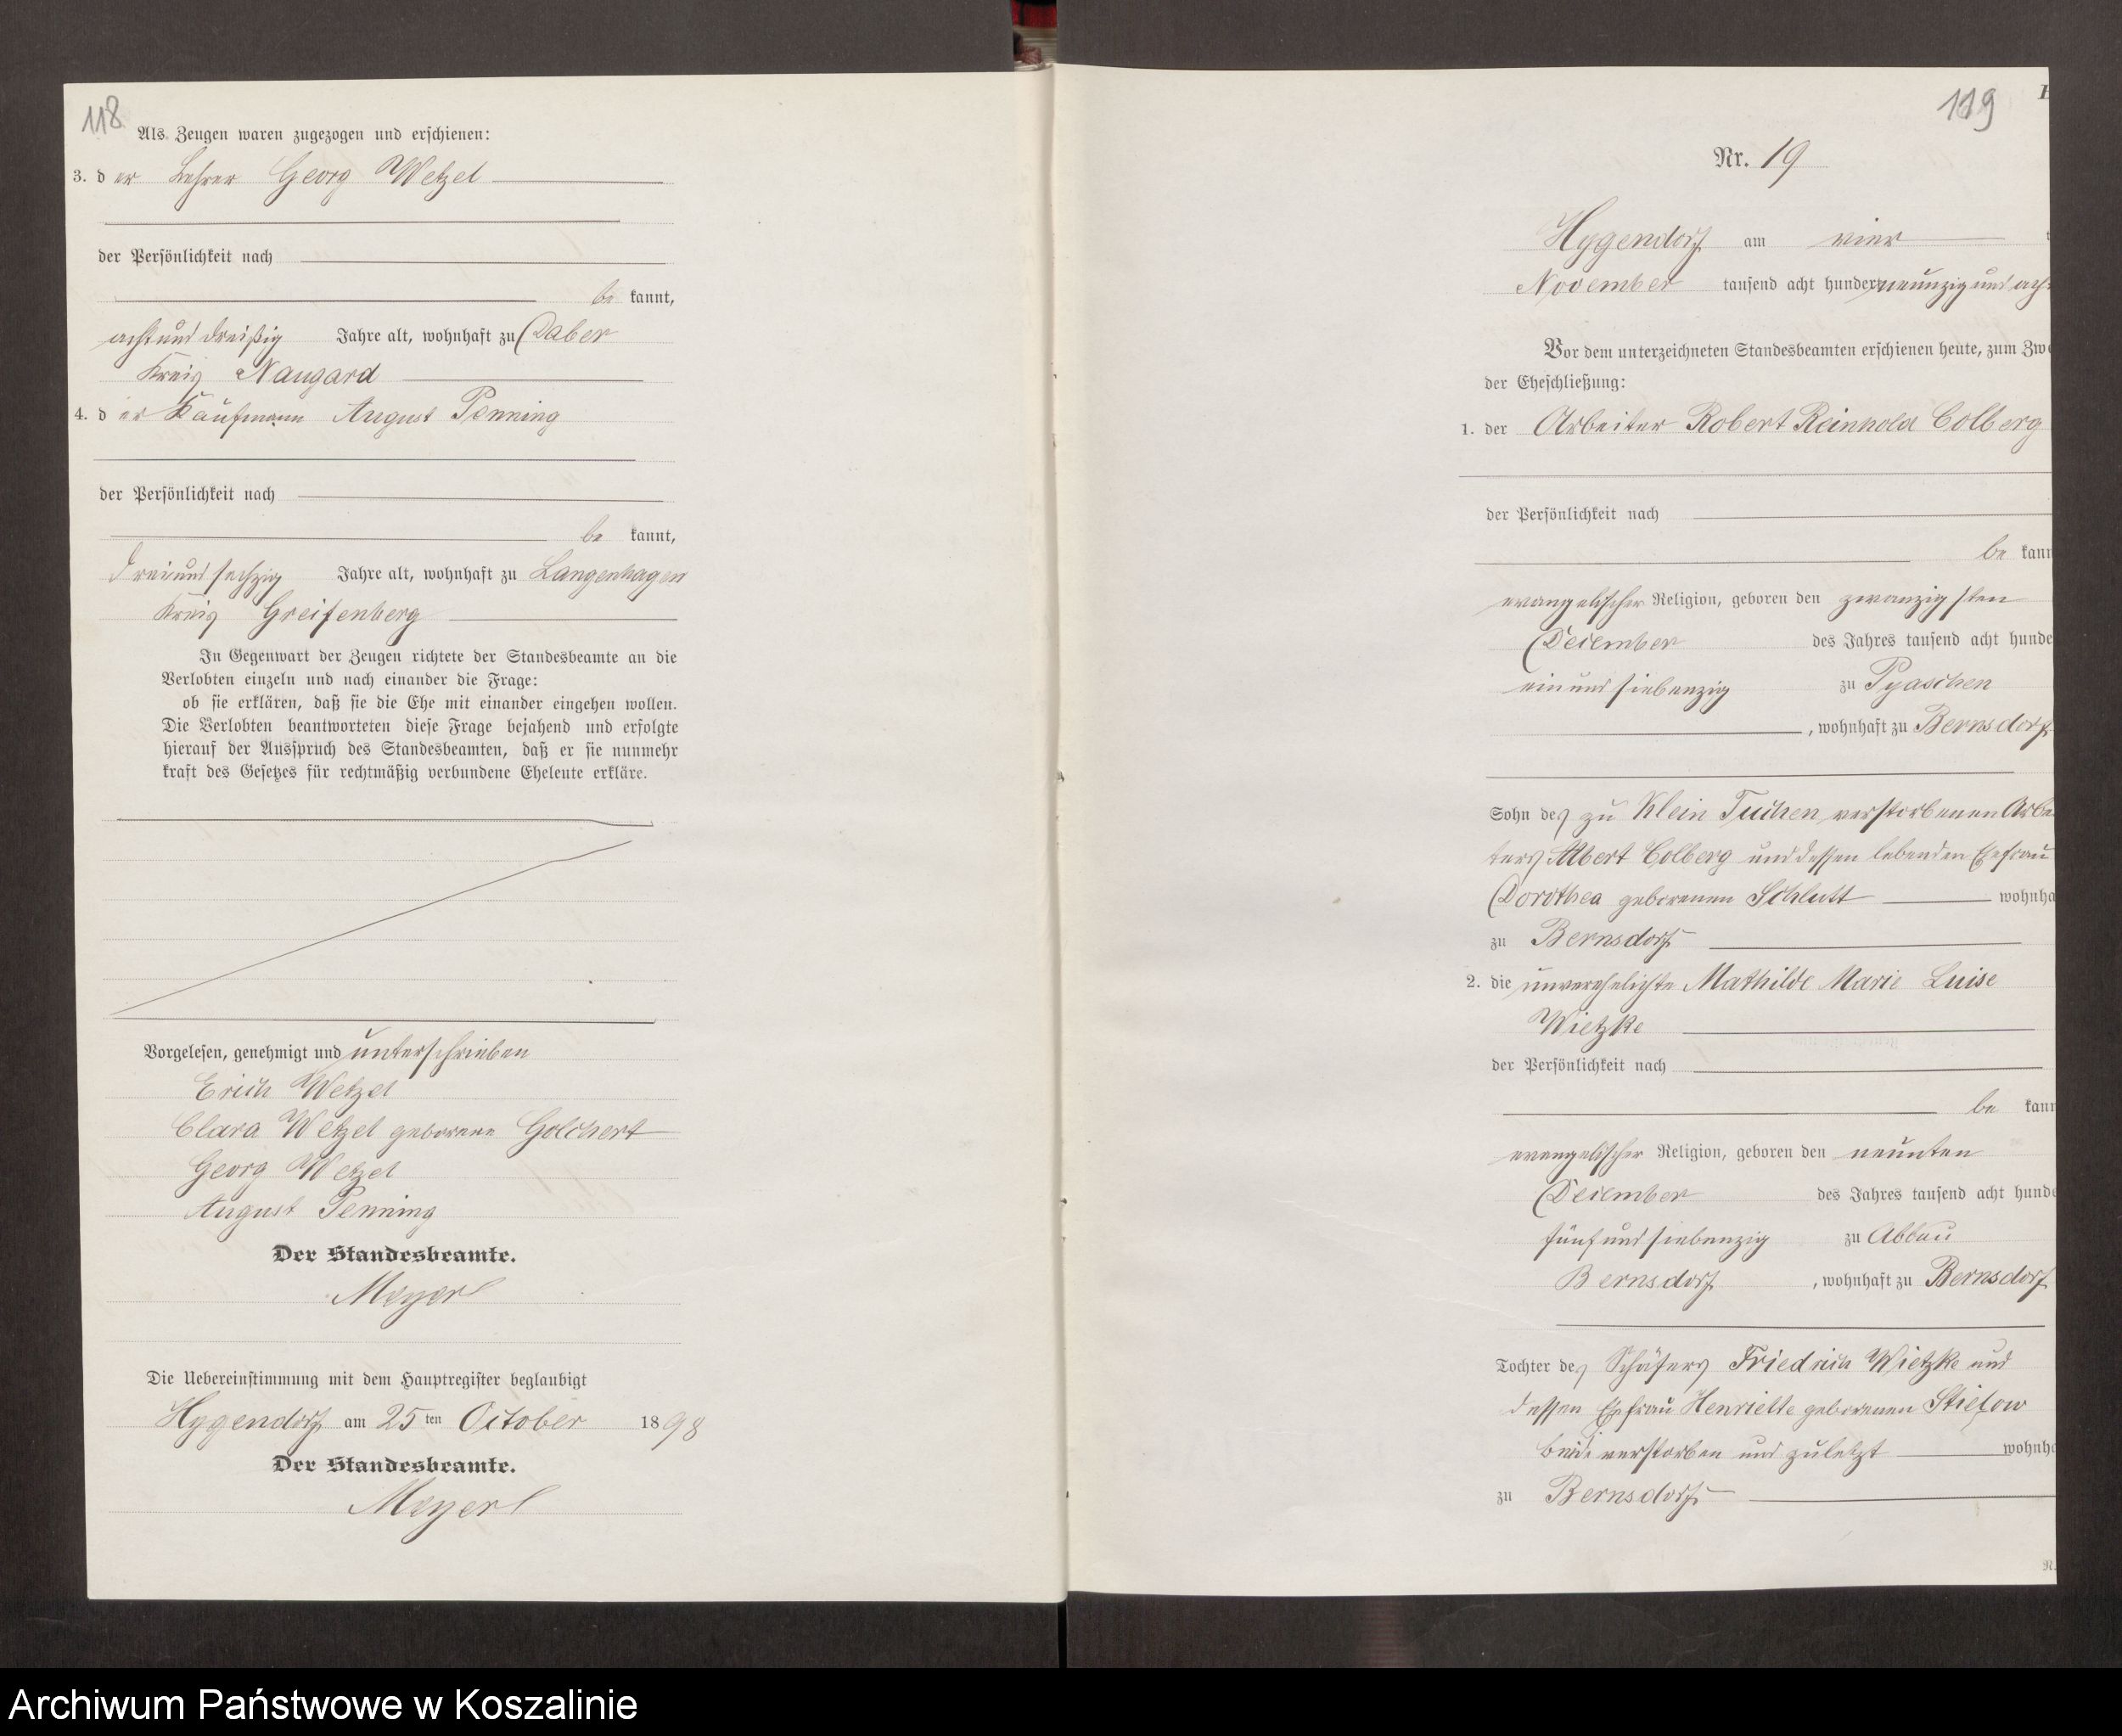 118
Als Zeugen waren zugezogen und erschienen:
3. der Lehrer Georg Wetzel
der Persönlichkeit nach
be kannt,
acht und dreißig Jahre alt, wohnhaft zu Daber
Kreis Naugard
4. der Kaufmann August Penning
der Persönlichkeit nach
be kannt,
drei und sechzig Jahre alt, wohnhaft zu Langenhagen
Kreis Greifenberg
In Gegenwart der Zeugen richtete der Standesbeamte an die
Verlobten einzeln und nach einander die Frage:
ob sie erklären, daß sie die Ehe mit einander eingehen wollen.
Die Verlobten beantworteten diese Frage bejahend und erfolgte
hierauf der Ausspruch des Standesbeamten, daß er sie nunmehr
kraft des Gesetzes für rechtmäßig verbundene Eheleute erkläre.
Vorgelesen, genehmigt und unterschrieben
Erich Wetzel
Clara Wetzel geborene Golchert
Georg Wetzel
August Penning
Der Standesbeamte.
Meyer
Die Uebereinstimmung mit dem Hauptregister beglaubigt
Hygendorf am 25ten October 1898
Der Standesbeamte.
Meyer
119
Nr. 19
Hygendorf am vier
November tausend acht hundert neunzig und ach
Vor dem unterzeichneten Standesbeamten erschienen heute, zum Zwe
der Eheschließung:
1. der Arbeiter Robert Reinhold Colberg
der Persönlichkeit nach
be kann
evangelischer Religion, geboren den zwanzigsten
December des Jahres tausend acht hunde
ein und siebenzig zu Pyaschen
, wohnhaft zu Bernsdorf
Sohn des zu Klein Tuchen verstorbenen Arbei
ters Albert Colberg und dessen lebenden Ehefrau
Dorothea geborenen Schlutt wohnha
zu Bernsdorf
2. die unverehelichte Mathilde Marie Luise
Wietzke
der Persönlichkeit nach
be kann
evangelischer Religion, geboren den neunten
December des Jahres tausend acht hunde
fünf und siebenzig zu Abbau
Bernsdorf, wohnhaft zu Bernsdorf
Tochter des Schäfers Friedrich Wietzke und
dessen Ehefrau Henriette geborenen Stielow
beide verstorben und zuletzt wohnha
zu Bernsdorf
Archiwum Państwowe w Koszalinie